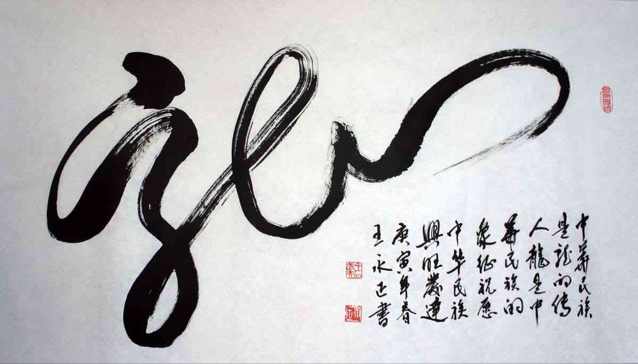 龍
中華民族
是龍的傳
人龍是中
華民族的
象征祝愿
中华民族
興旺發達
庚寅年春
王永正書